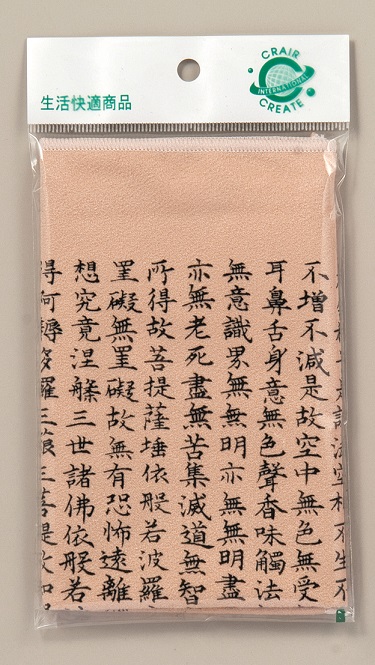 生活快適商品
CRAIR
INTERNATIONAL
CREATE
空相不生不
不增不減是故空中無色無受
耳鼻舌身意無色聲香味觸法
無意識界無無明亦無無明盡
亦無老死盡無苦集滅道無智
所得故菩提薩埵依般若波羅
罣礙無罣礙故無有恐怖遠離
想究竟涅槃三世諸佛依般若
得阿耨多羅三藐三菩提故知